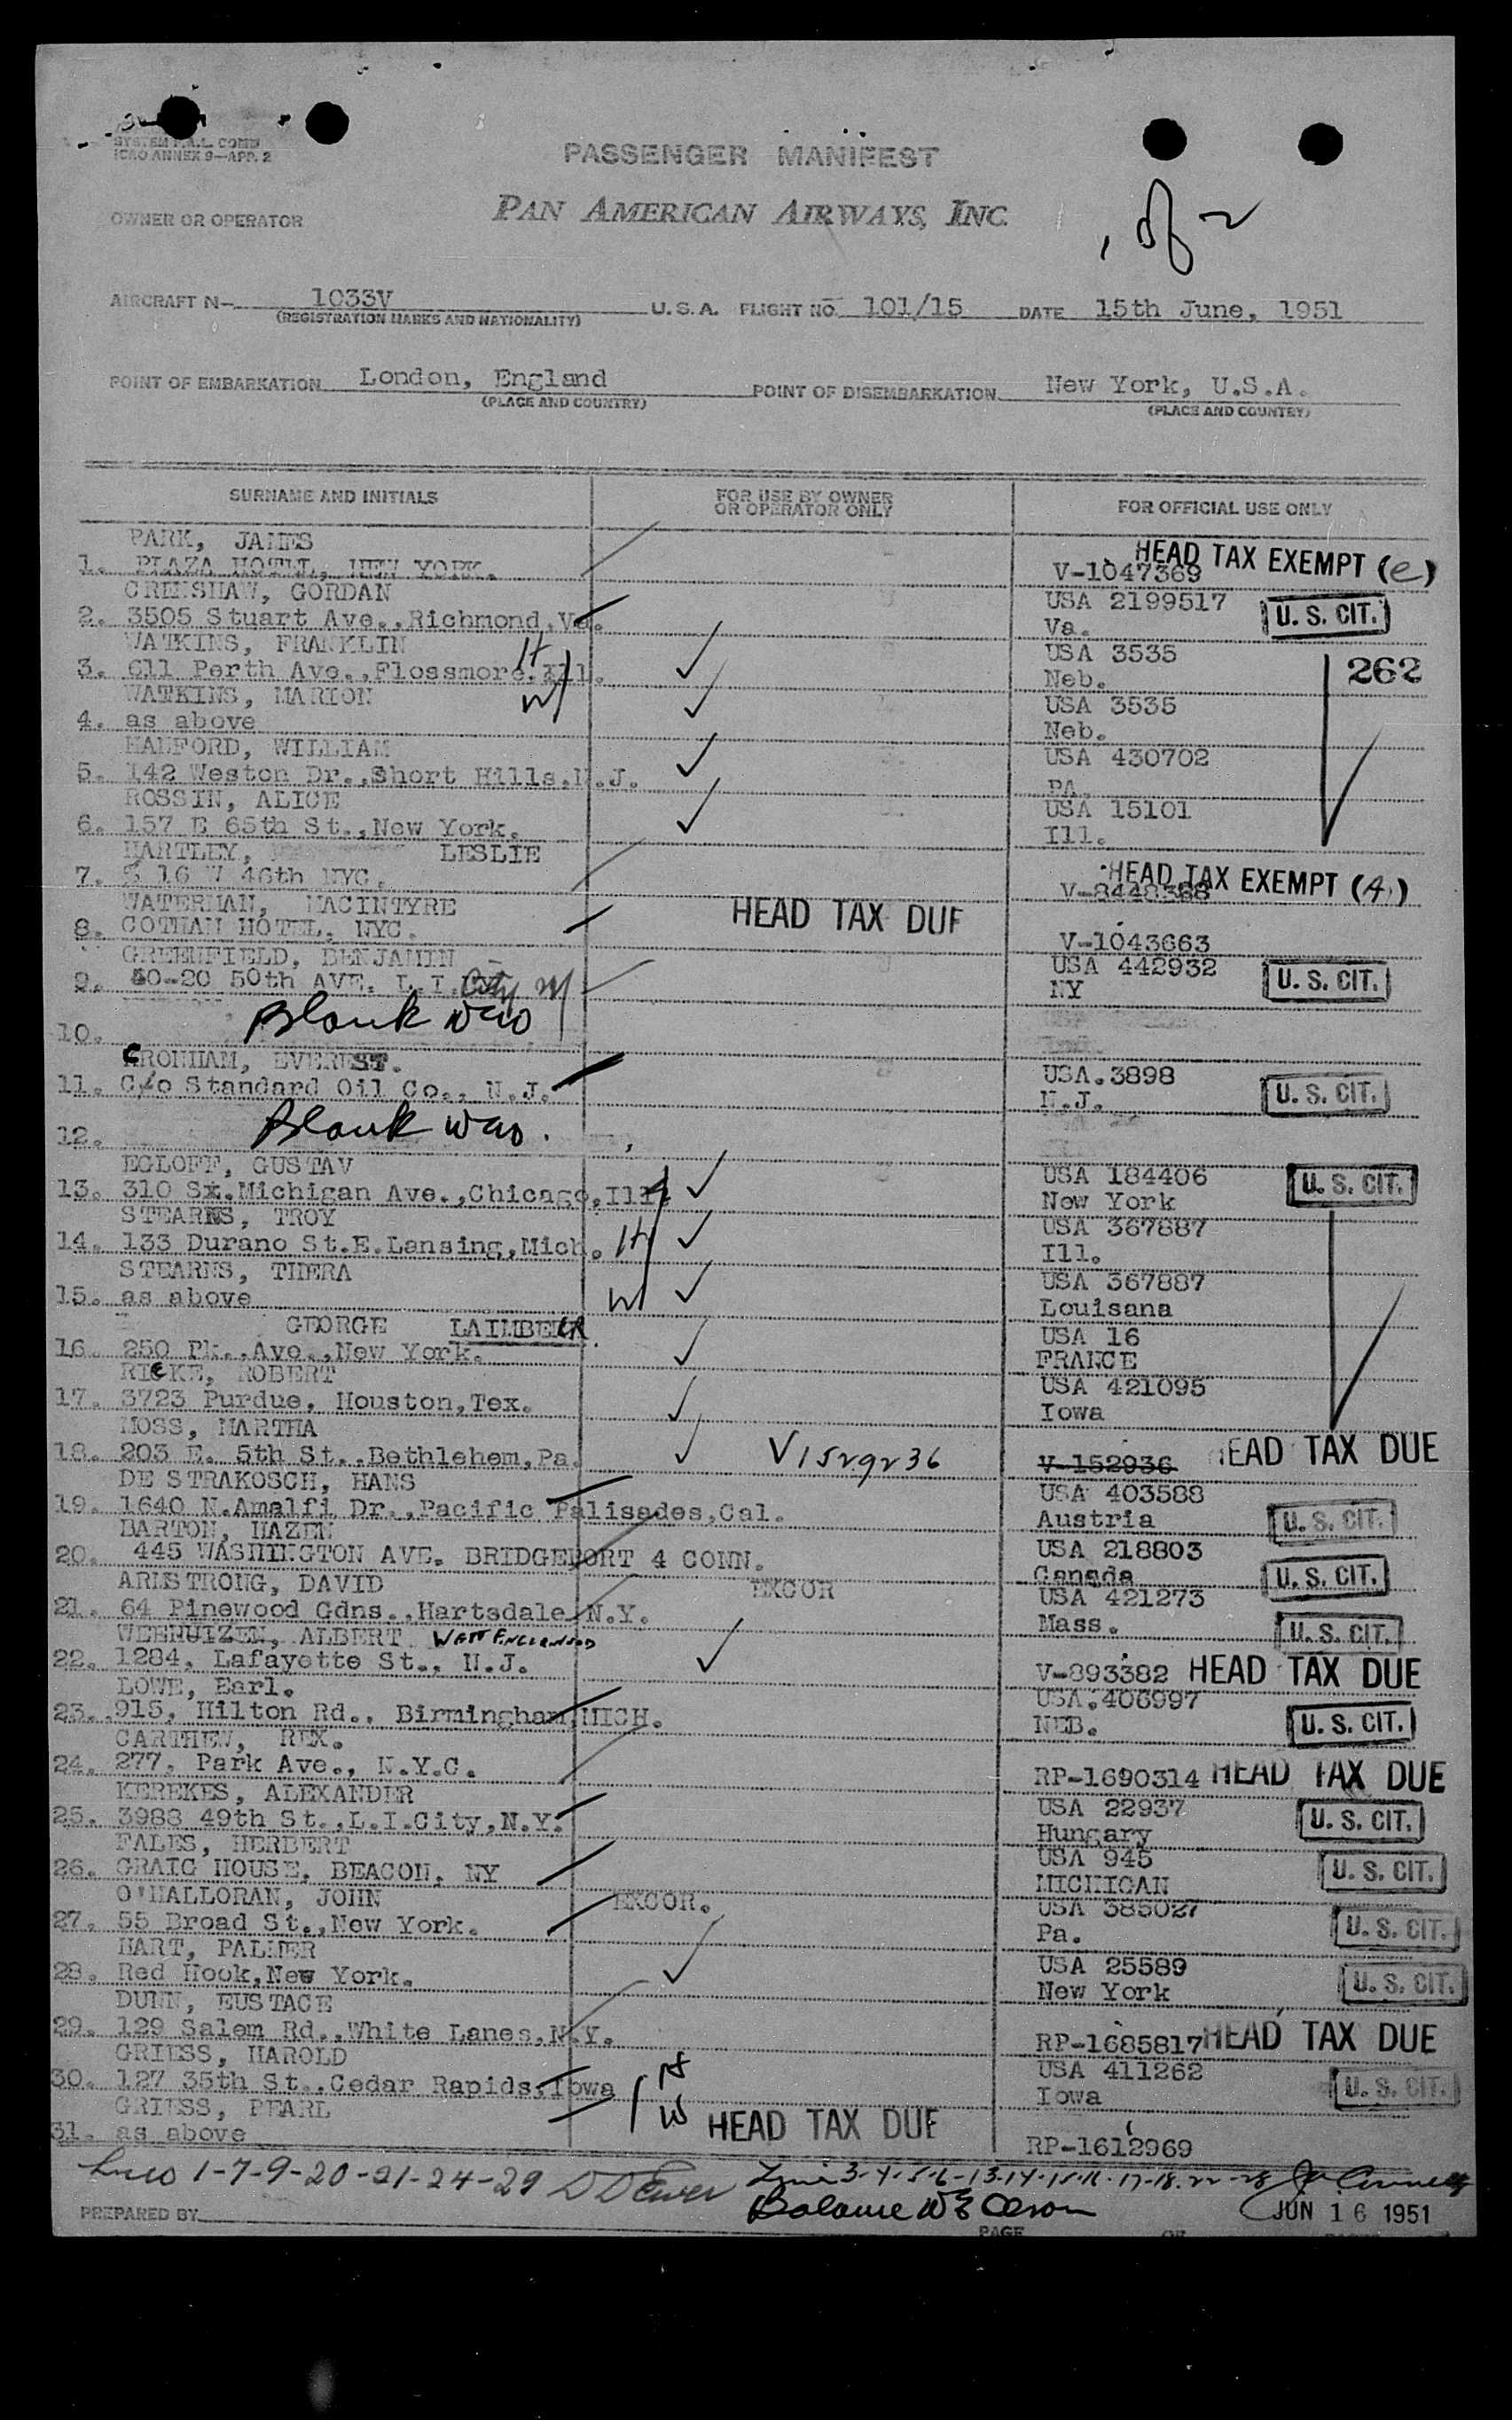 SYSTEM P.A.L. COMB
ICAO ANNEX 9—APP. 2
PASSENGER MANIFEST
OWNER OR OPERATOR
PAN AMERICAN AIRWAYS, INC.
1 of 2
AIRCRAFT N— 1033V U.S.A. FLIGHT NO. 101/15 DATE 15th June, 1951
(REGISTRATION MARKS AND NATIONALITY)
POINT OF EMBARKATION London, England POINT OF DISEMBARKATION New York, U.S.A.
(PLACE AND COUNTRY) (PLACE AND COUNTRY)
SURNAME AND INITIALS FOR USE BY OWNER OR OPERATOR ONLY FOR OFFICIAL USE ONLY
PARK, JAMES HEAD TAX EXEMPT (e)
1. PLAZA HOTEL, NEW YORK. V-1047369
CRENSHAW, GORDAN USA 2199517 U. S. CIT.
2. 3505 Stuart Ave.,Richmond,Va. Va.
WATKINS, FRANKLIN H USA 3535 262
3. 611 Perth Ave.,Flossmore.Ill. Neb.
WATKINS, MARION W USA 3535
4. as above Neb.
HALFORD, WILLIAM USA 430702
5. 142 Weston Dr.,Short Hills,N.J. PA.
ROSSIN, ALICE USA 15101
6. 157 E 65th St.,New York. Ill.
HARTLEY, LESLIE HEAD TAX EXEMPT (A)
7. % 16 W 46th NYC. V-8448368
WATERMAN, MACINTYRE HEAD TAX DUE
8. GOTHAM HOTEL, NYC. V-1043663
GREENFIELD, BENJAMIN USA 442932 U. S. CIT.
9. 40-20 50th AVE. L.I. City NY
10. Blank
CRONHAM, EVEREST. USA.3898 U. S. CIT.
11. C/o Standard Oil Co., N.J. N.J.
12. Blank
EGLOFF, GUSTAV USA 184406 U. S. CIT.
13. 310 S. Michigan Ave.,Chicago,Ill. New York
STEARNS, TROY USA 367887
14. 133 Durano St.E.Lansing,Mich. H Ill.
STEARNS, THERA USA 367887
15. as above W Louisana
GEORGE LAIMBEER USA 16
16. 250 Pk.,Ave.,New York. FRANCE
RIEKE, ROBERT USA 421095
17. 3723 Purdue, Houston,Tex. Iowa
MOSS, MARTHA HEAD TAX DUE
18. 203 E. 5th St.,Bethlehem,Pa. V 1529236 V-152936
DE STRAKOSCH, HANS USA 403588
19. 1640 N.Amalfi Dr.,Pacific Palisades,Cal. Austria U. S. CIT.
BARTON, HAZEN USA 218803
20. 445 WASHINGTON AVE. BRIDGEPORT 4 CONN. Canada U. S. CIT.
ARMSTRONG, DAVID EXCOR USA 421273
21. 64 Pinewood Gdns.,Hartsdale N.Y. Mass. U. S. CIT.
WEEHUIZEN, ALBERT WEST ENGLEWOOD
22. 1284, Lafayette St., N.J. V-893382 HEAD TAX DUE
LOWE, Earl. USA.406997
23. 915, Hilton Rd., Birmingham,MICH. NEB. U. S. CIT.
CARTHEW, REX.
24. 277, Park Ave., N.Y.C. RP-1690314 HEAD TAX DUE
KEREKES, ALEXANDER USA 22937
25. 3988 49th St.,L.I.City,N.Y. Hungary U. S. CIT.
FALES, HERBERT USA 945
26. CRAIG HOUSE, BEACON, NY MICHIGAN U. S. CIT.
O'HALLORAN, JOHN EXCOR. USA 385027
27. 55 Broad St.,New York. Pa. U. S. CIT.
HART, PALMER USA 25589
28. Red Hook,New York. New York U. S. CIT.
DUNN, EUSTACE
29. 129 Salem Rd.,White Lanes,N.Y. RP-1685817 HEAD TAX DUE
GRIESS, HAROLD H USA 411262
30. 127 35th St.,Cedar Rapids,Iowa Iowa U. S. CIT.
GRIESS, PEARL W HEAD TAX DUE
31. as above RP-1612969
Lines 1-7-9-20-21-24-29 Line 3-4-5-6-13-14-15-16-17-18-22-28
PREPARED BY Balance JUN 16 1951
PAGE OF